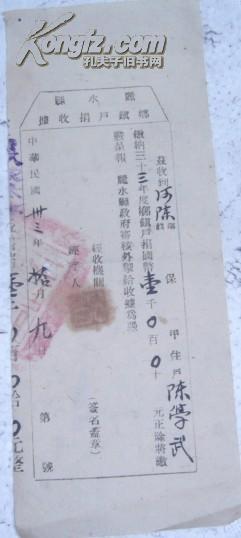 Kongfz.com
孔夫子旧书网
麗水縣
鄉鎮戶捐收據
茲收到河陳鄉鎮 保 甲住戶陳學武
繳納三十三年度鄉鎮戶捐國幣壹千0百0十 元正除將繳
數呈報 麗水縣政府審核外掣給收據為憑
經收機關
經手人 (簽名蓋章)
中華民國卅三年拾月九日 第 號
0拾0元整